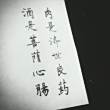 肉是济世良药
酒是菩薩心腸